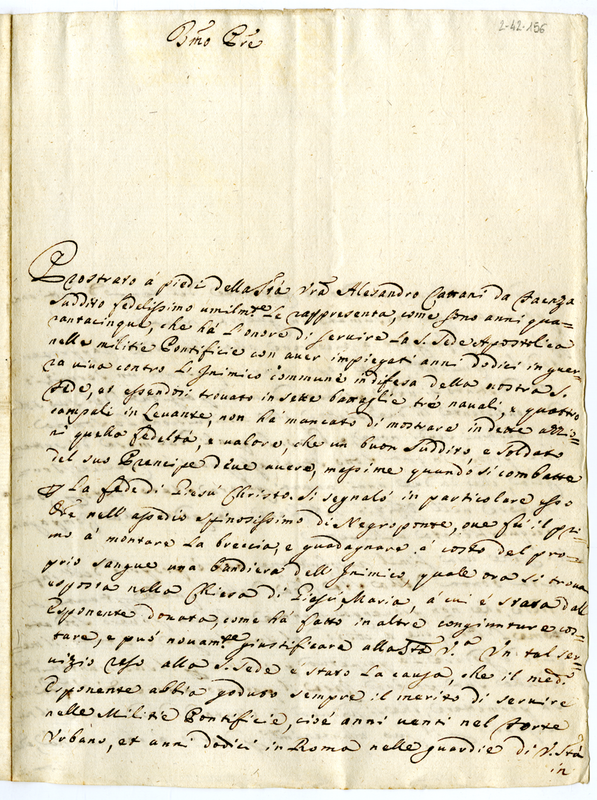 2-42-156
Bmo Pre
Prostrato á piedi della Stà Vrã Alesandro Cattani da Faenza
Suddito fedelissimo umilmte le rappresenta, come sono anni qua=
rantacinque, che há l'onore di servire la S. Sede Apostolica
nelle militie Pontificie con aver impiegati anni dodici in guer=
ra viva contro L'Inimico commune in difesa della nostra S.
Fede, et essendosi trovato in sette battaglie tré navali, e quattro
campali in Levante, non há mancato di mostrare in dette azzio=
ni quella fedeltá, e valore, che un buon suddito, e soldato
del suo Prencipe deve avere, massime quando si combatte
La fede di Giesú Christo. Si segnaló in particolare esso
Ore nell'assedio spinosissimo di Negroponte, ove fú il pri=
mo á montare La breccia, e guadagnare á costo del pro=
prio sangue una bandiera dell'Inimico, quale ora si trova
esposta nella Chiesa di Giesú Maria, á cui é stata dall'
Esponente donata, come há fatto in altre congiunture cos=
tare, e puó novamte giustificare alla Stà V.a Un tal ser=
vizio reso alla S. Sede é stato La causa, che il medo
Esponente abbia goduto sempre il merito di servire
nelle Militie Pontificie, cioé anni venti nel Forte
Urbano, et anni dodici in Roma nelle guardie di V. Stà
in